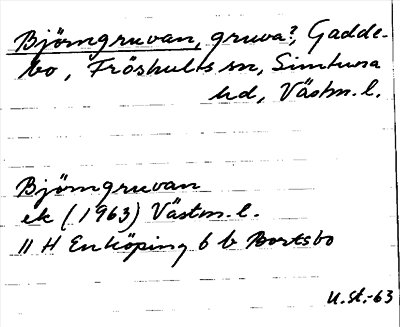 Björngruvan, gruva?, Gadde-
bo, Fröshults sn, Simtuna
hd, Västm. l.
Björngruvan
ek (1963) Västm. l.
11 H Enköping 6 b Bortsbo
U.St.-63